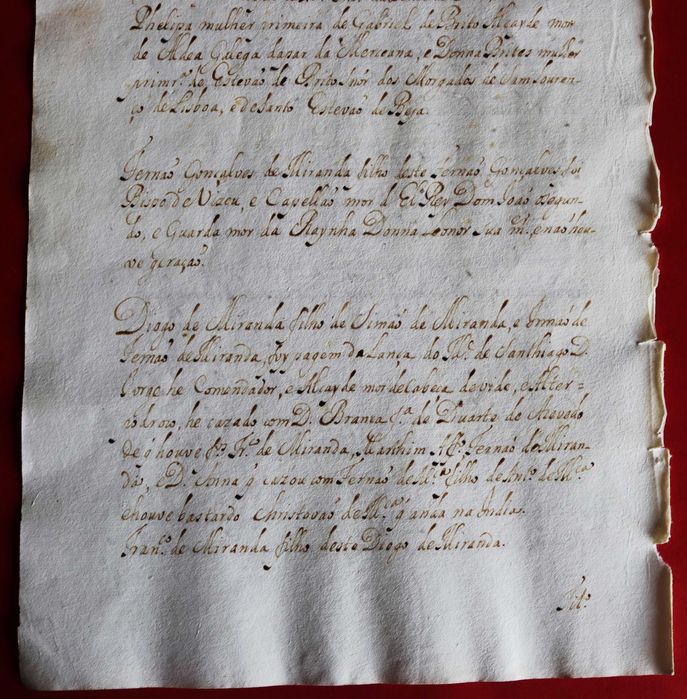 Phelipa mulher primeira de Gabriel de Brito Alcayde mor
de Aldea Galega dapar da Merceana, e Donna Brites mulher
primr.ᵃ de Estevaõ de Brito Snõr dos Morgados de Sam Louren-
ço de Lisboa, e de Santo Estevaõ de Beja.
Fernaõ Gonçalves de Miranda filho deste Fernaõ Gonçalves foi
Bispo de Vizeu, e Capellaõ mor d El Rey Dom Joaõ o segun-
do, e Guarda mor da Raynha Donna Leonor sua m.ᵉʳ e naõ hou-
ve geraçaõ.
Diogo de Miranda filho de Simaõ de Miranda, e Irmaõ de
Fernaõ de Miranda, foy pagem da Lança do M.ᵉ de Santhiago D.
Jorge he Comendador, e Alcayde mor de Cabeça de vide, e Alter-
o drozo, he cazado com D. Branca f.ᵃ de Duarte de Azevedo
de q̃ houve Fr.ᶜᵒ de Miranda, Marthim Aff.º Fernaõ de Miran-
da, e D. Anna q̃ cazou com Fernaõ de M.ᶜᵃ filho de Ant.º de M.ᶜᵃ
e houve bastardo Christovaõ de M.ᶜᵃ q̃ anda na India.
Fran.ᶜᵒ de Miranda filho deste Diogo de Miranda.